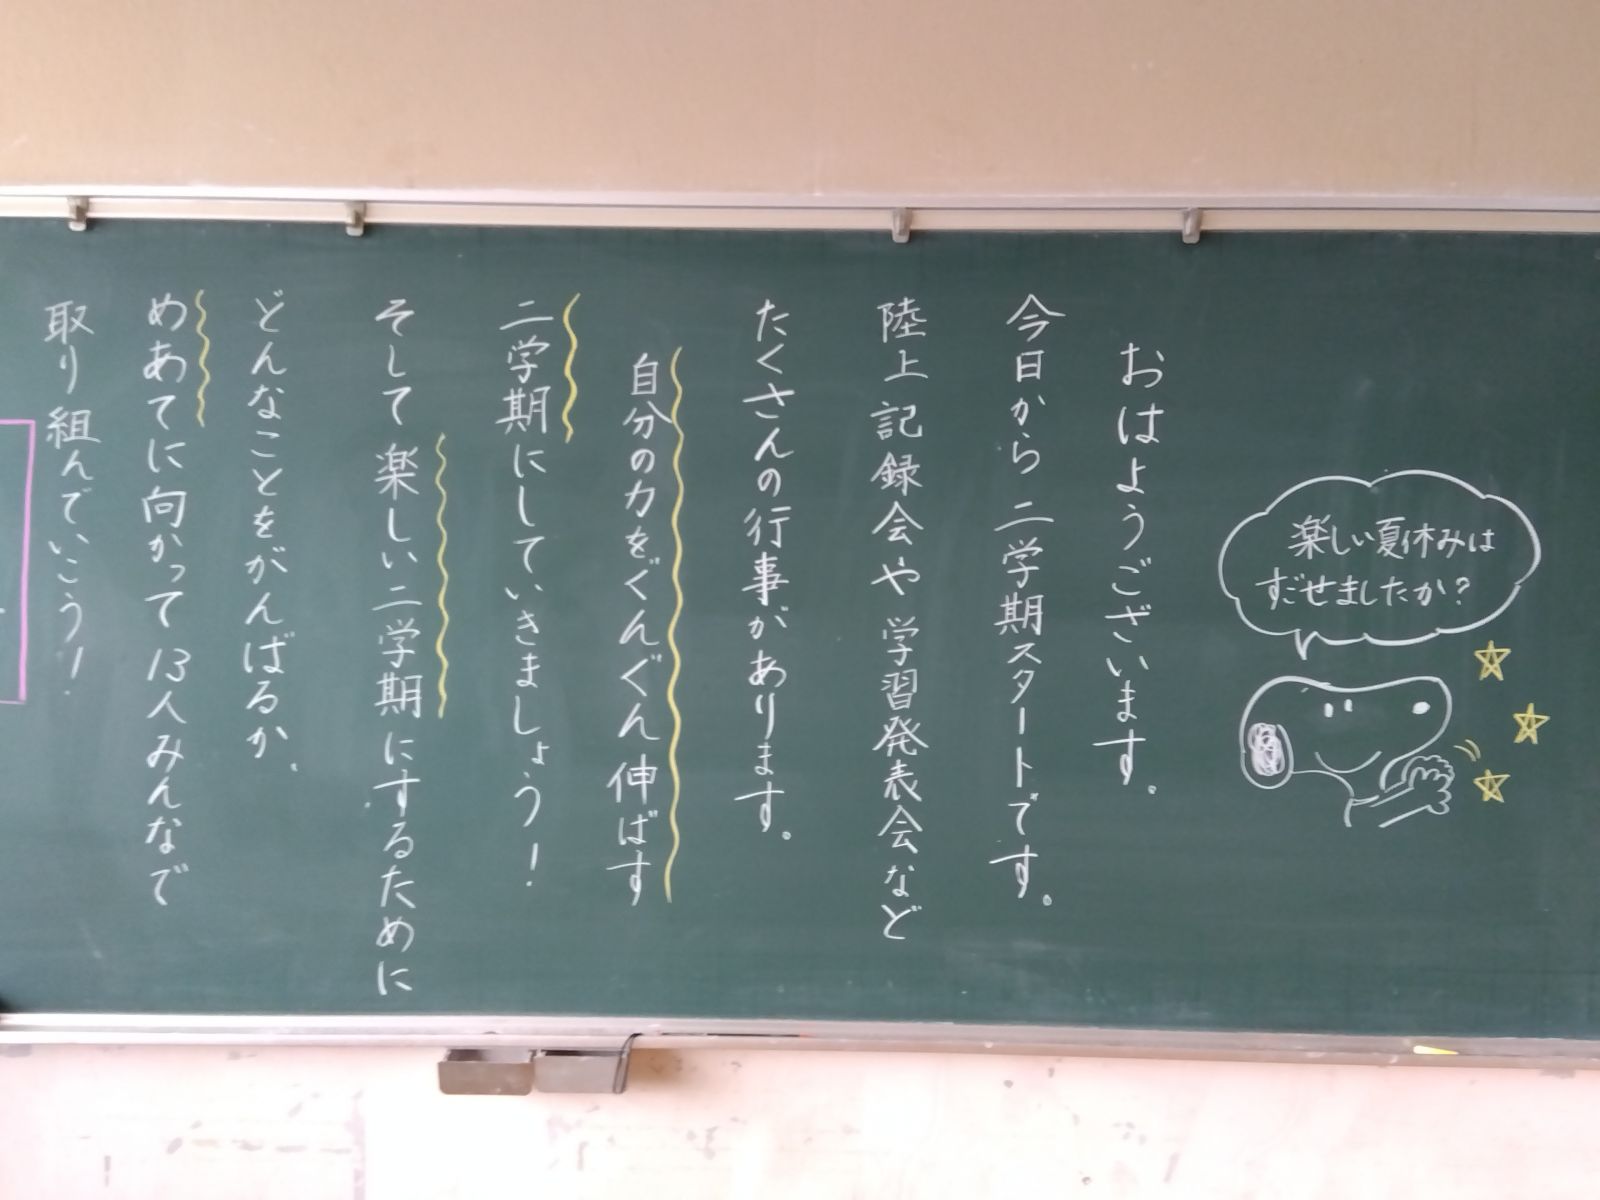 楽しい夏休みは
すごせましたか?
おはようございます。
今日から二学期スタートです。
陸上記録会や学習発表会など
たくさんの行事があります。
自分の力をぐんぐん伸ばす
二学期にしていきましょう!
そして楽しい二学期にするために
どんなことをがんばるか、
めあてに向かって13人みんなで
取り組んでいこう!